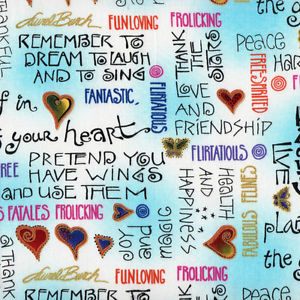 Laurel Burch
FUNLOVING
FROLICKING
Thankful
REMEMBER TO
DREAM TO LAUGH
AND TO SING
THANK
THE STARS
FOR
LOVE
AND
FRIENDSHIP
HAPPINESS
peace
Har
FREE SPIRITED
FANTASTIC,
FLIRTATIOUS
f in
s your heart
PRETEND YOU
HAVE WINGS
and USE THEM
FREE
FLIRTATIOUS
live
S FATALES
FROLICKING
HEALTH
AND
HAPPINESS
FABULOUS FELINES
plan
the
of
Joy
and
magic
a Thank
Laurel Burch
FUNLOVING
FROLICKING
peace